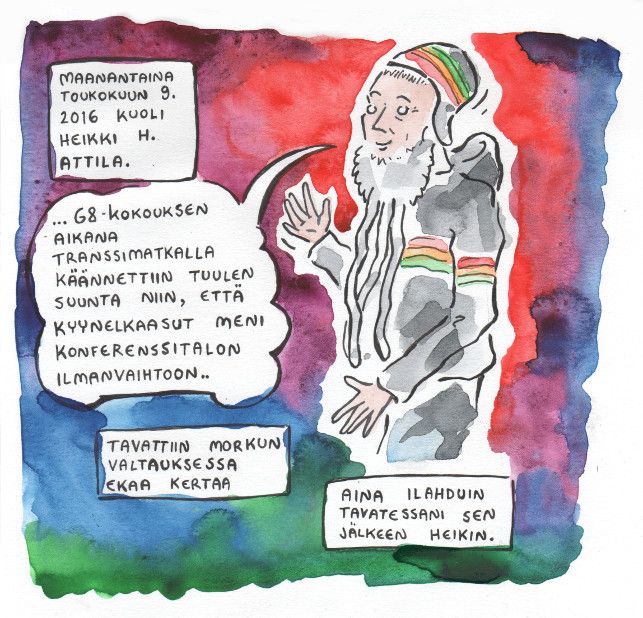 MAANANTAINA
TOUKOKUUN 9.
2016 KUOLI
HEIKKI H.
ATTILA.
... G8-KOKOUKSEN
AIKANA
TRANSSIMATKALLA
KÄÄNNETTIIN TUULEN
SUUNTA NIIN, ETTÄ
KYYNELKAASUT MENI
KONFERENSSITALON
ILMANVAIHTOON..
TAVATTIIN MORKUN
VALTAUKSESSA
EKAA KERTAA
AINA ILAHDUIN
TAVATESSANI SEN
JÄLKEEN HEIKIN.